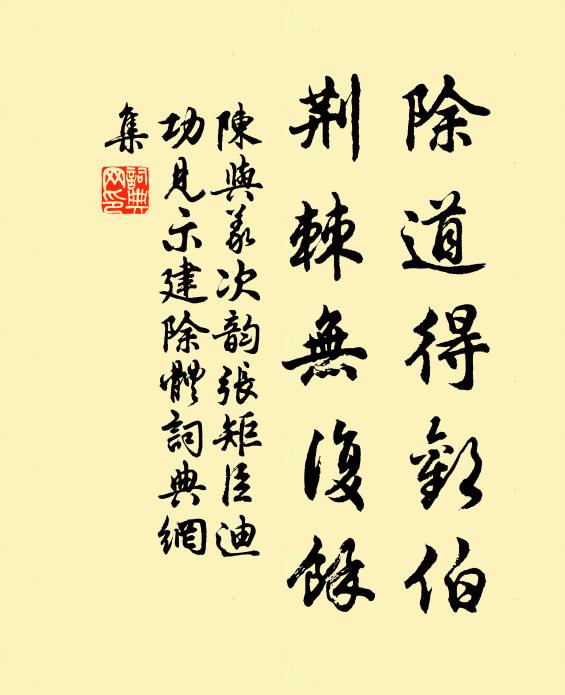 除道得歡伯
荆棘無復餘
陳與義次韵張矩臣迪
功見示建除體詞典網
集
詞典網印